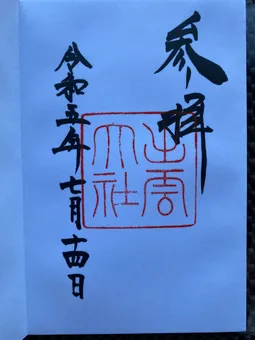 参拝
出雲大社
令和五年七月十四日